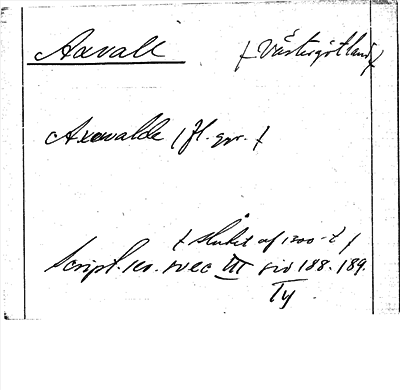 Axvall (Västergötland)
Axewalde (fl. ggr.)
(Slutet af 1300-t)
Script. rer. svec III sid 188. 189.
Ty